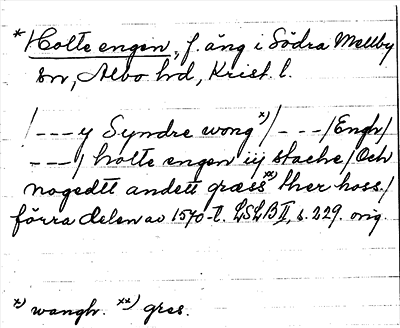 * Holte engen, f. äng i Södra Mellby
sn, Albo hd, Krist. l.
/---y Syndre wong x)/---/Engh/
---/ holte engen iij stacke/Och
nogedtt andett græss xx) ther hoss./
förra delen av 1570-t. LSLB II, s. 229. orig.
x) wangh. xx) gres.